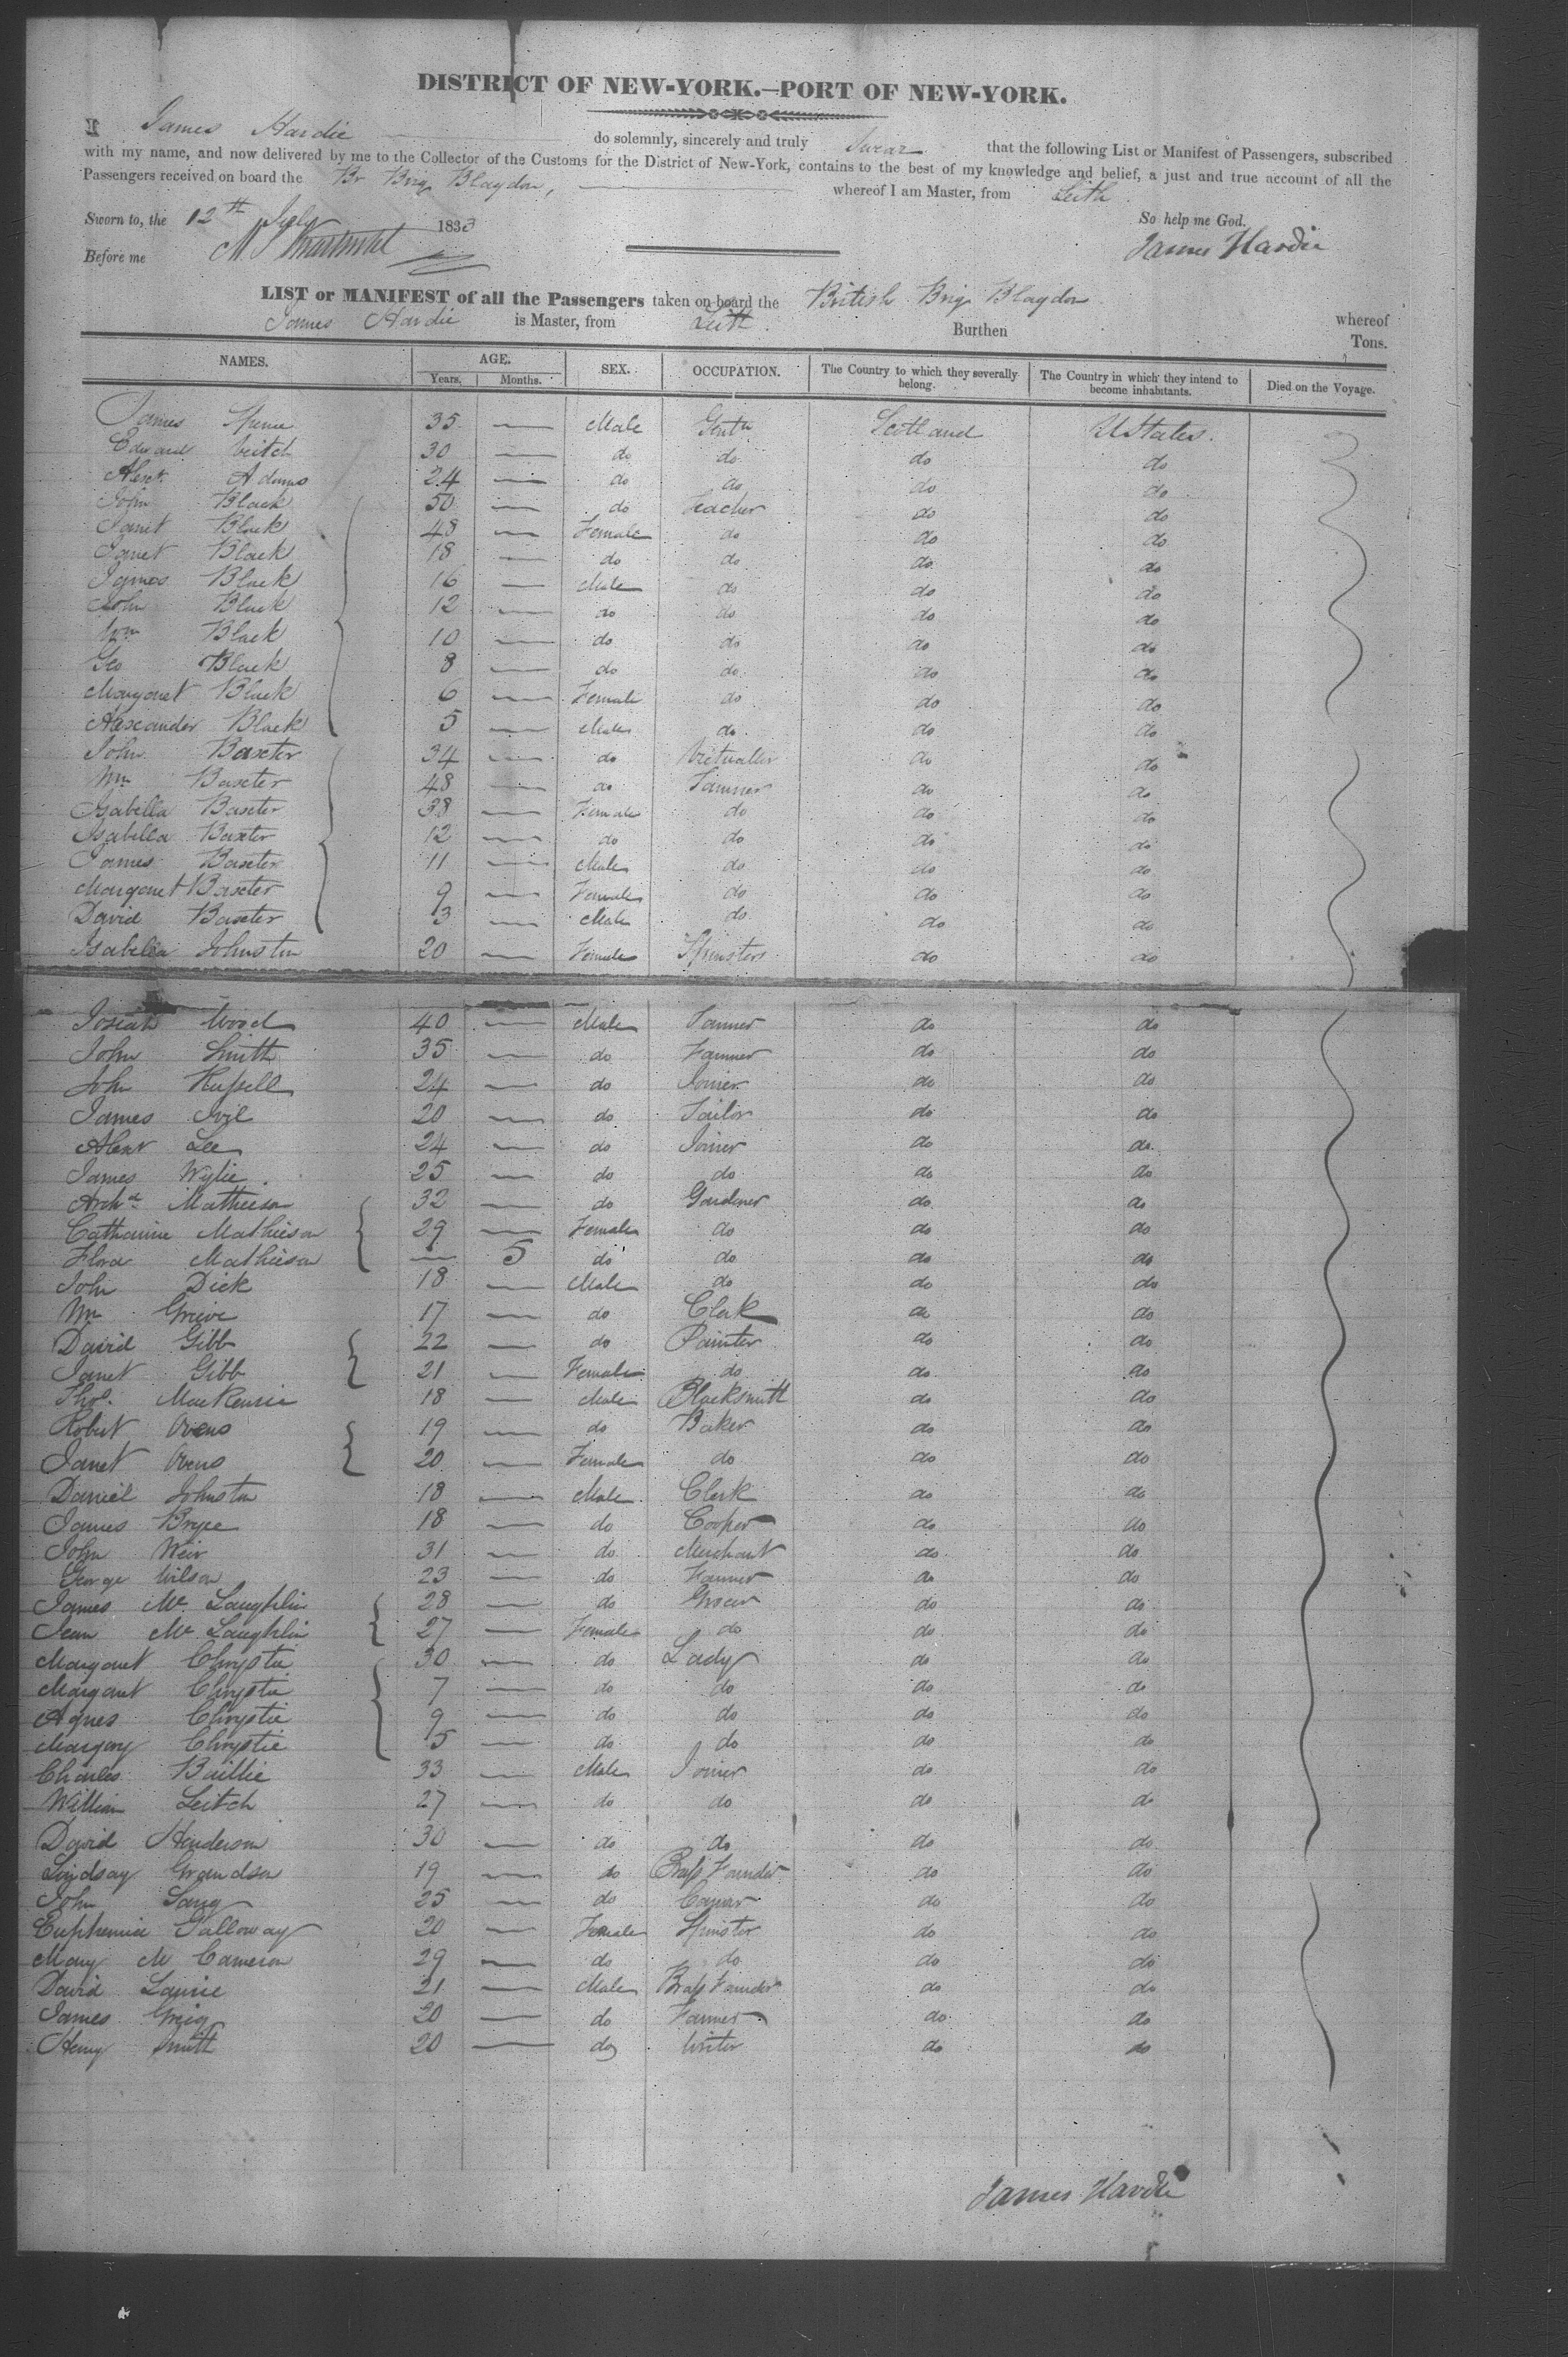 DISTRICT OF NEW-YORK.—PORT OF NEW-YORK.
I James Hardie do solemnly, sincerely and truly Swear that the following List or Manifest of Passengers, subscribed
with my name, and now delivered by me to the Collector of the Customs for the District of New-York, contains to the best of my knowledge and belief, a just and true account of all the
Passengers received on board the Br Brig Blaydon, whereof I am Master, from Leith
Sworn to, the 12th July 1833 So help me God.
Before me James Hardie
LIST or MANIFEST of all the Passengers taken on board the British Brig Blaydon whereof
James Hardie is Master, from Leith Burthen Tons.
NAMES. AGE. Years. Months. SEX. OCCUPATION. The Country to which they severally belong. The Country in which they intend to become inhabitants. Died on the Voyage.
James Spence 35 — Male Gentn Scotland UStates.
Edward Veitch 30 — do do do do
Alexr Adams 24 — do do do do
John Black 50 — do Teacher do do
Janet Black 48 — Female do do do
Janet Black 18 — do do do do
James Black 16 — Male do do do
John Black 12 — do do do do
Wm Black 10 — do do do do
Geo Black 8 — do do do do
Margaret Black 6 — Female do do do
Alexander Black 5 — Male do do do
John Baxter 34 — do Victualler do do
Wm Baxter 48 — do Farmer do do
Isabella Baxter 38 — Female do do do
Isabella Baxter 12 — do do do do
James Baxter 11 — Male do do do
Margaret Baxter 9 — Female do do do
David Baxter 3 — Male do do do
Isabella Johnston 20 — Female Spinster do do
Josiah Wood 40 — Male Farmer do do
John Smith 35 — do Farmer do do
John Russell 24 — do Joiner do do
James 20 — do Tailor do do
Alexr Lee 24 — do Joiner do do
James Wylie 25 — do do do do
Archd Mathieson 32 — do Gardener do do
Catharine Mathieson 29 — Female do do do
Flora Mathieson — 5 do do do do
John Dick 18 — Male do do do
Wm Grieve 17 — do Clerk do do
David Gibb 22 — do Painter do do
Janet Gibb 21 — Female do do do
Thos. MacKenzie 18 — Male Blacksmith do do
Robert Ovens 19 — do Baker do do
Janet Ovens 20 — Female do do do
Daniel Johnston 18 — Male Clerk do do
James Bryce 18 — do Cooper do do
John Weir 31 — do Merchant do do
George Wilson 23 — do Farmer do do
James Mc Laughlin 28 — do Grocer do do
Jean Mc Laughlin 27 — Female do do do
Margaret Chrystie 30 — do Lady do do
Margaret Chrystie 7 — do do do do
Agnes Chrystie 9 — do do do do
Margory Chrystie 5 — do do do do
Charles Baillie 33 — Male Joiner do do
William Leitch 27 — do do do do
David Henderson 30 — do do do do
Lindsay 19 — do Brass Founder do do
John Lang 25 — do do do
Euphemia Galloway 20 — Female Spinster do do
Mary M Cameron 29 — do do do do
David Laurie 21 — Male Brass Founder do do
James Greig 20 — do Farmer do do
Henry Smith 20 — do Writer do do
James Hardie